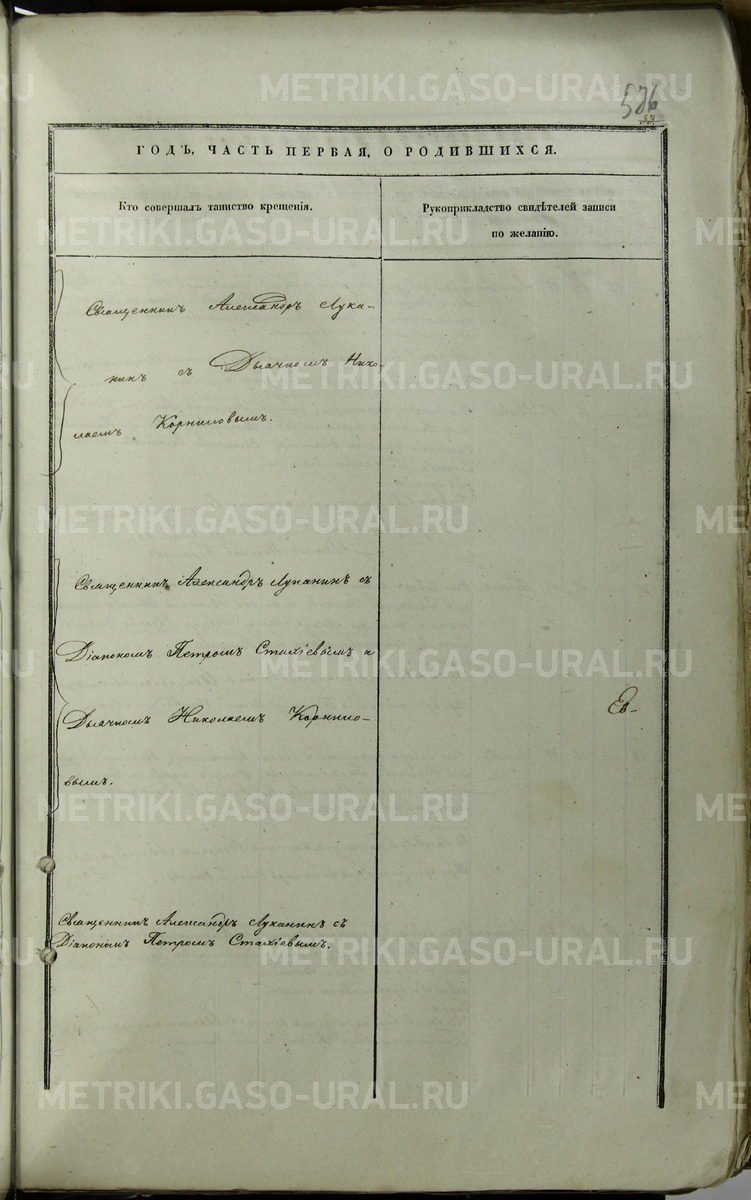 576
33
ГОДЪ, ЧАСТЬ ПЕРВАЯ, О РОДИВШИХСЯ.
Кто совершалъ таинство крещенія.
Рукоприкладство свидѣтелей записи
по желанію.
Священникъ Александръ Лука-
нинъ съ Дьячкомъ Нико-
лаемъ Корниловымъ.
Священникъ Александръ Луканинъ съ
Діакономъ Петромъ Стахіевымъ и
Дьячкомъ Николаемъ Корнило-
вымъ.
Священникъ Александръ Луканинъ съ
Діакономъ Петромъ Стахіевымъ.
METRIKI.GASO-URAL.RU